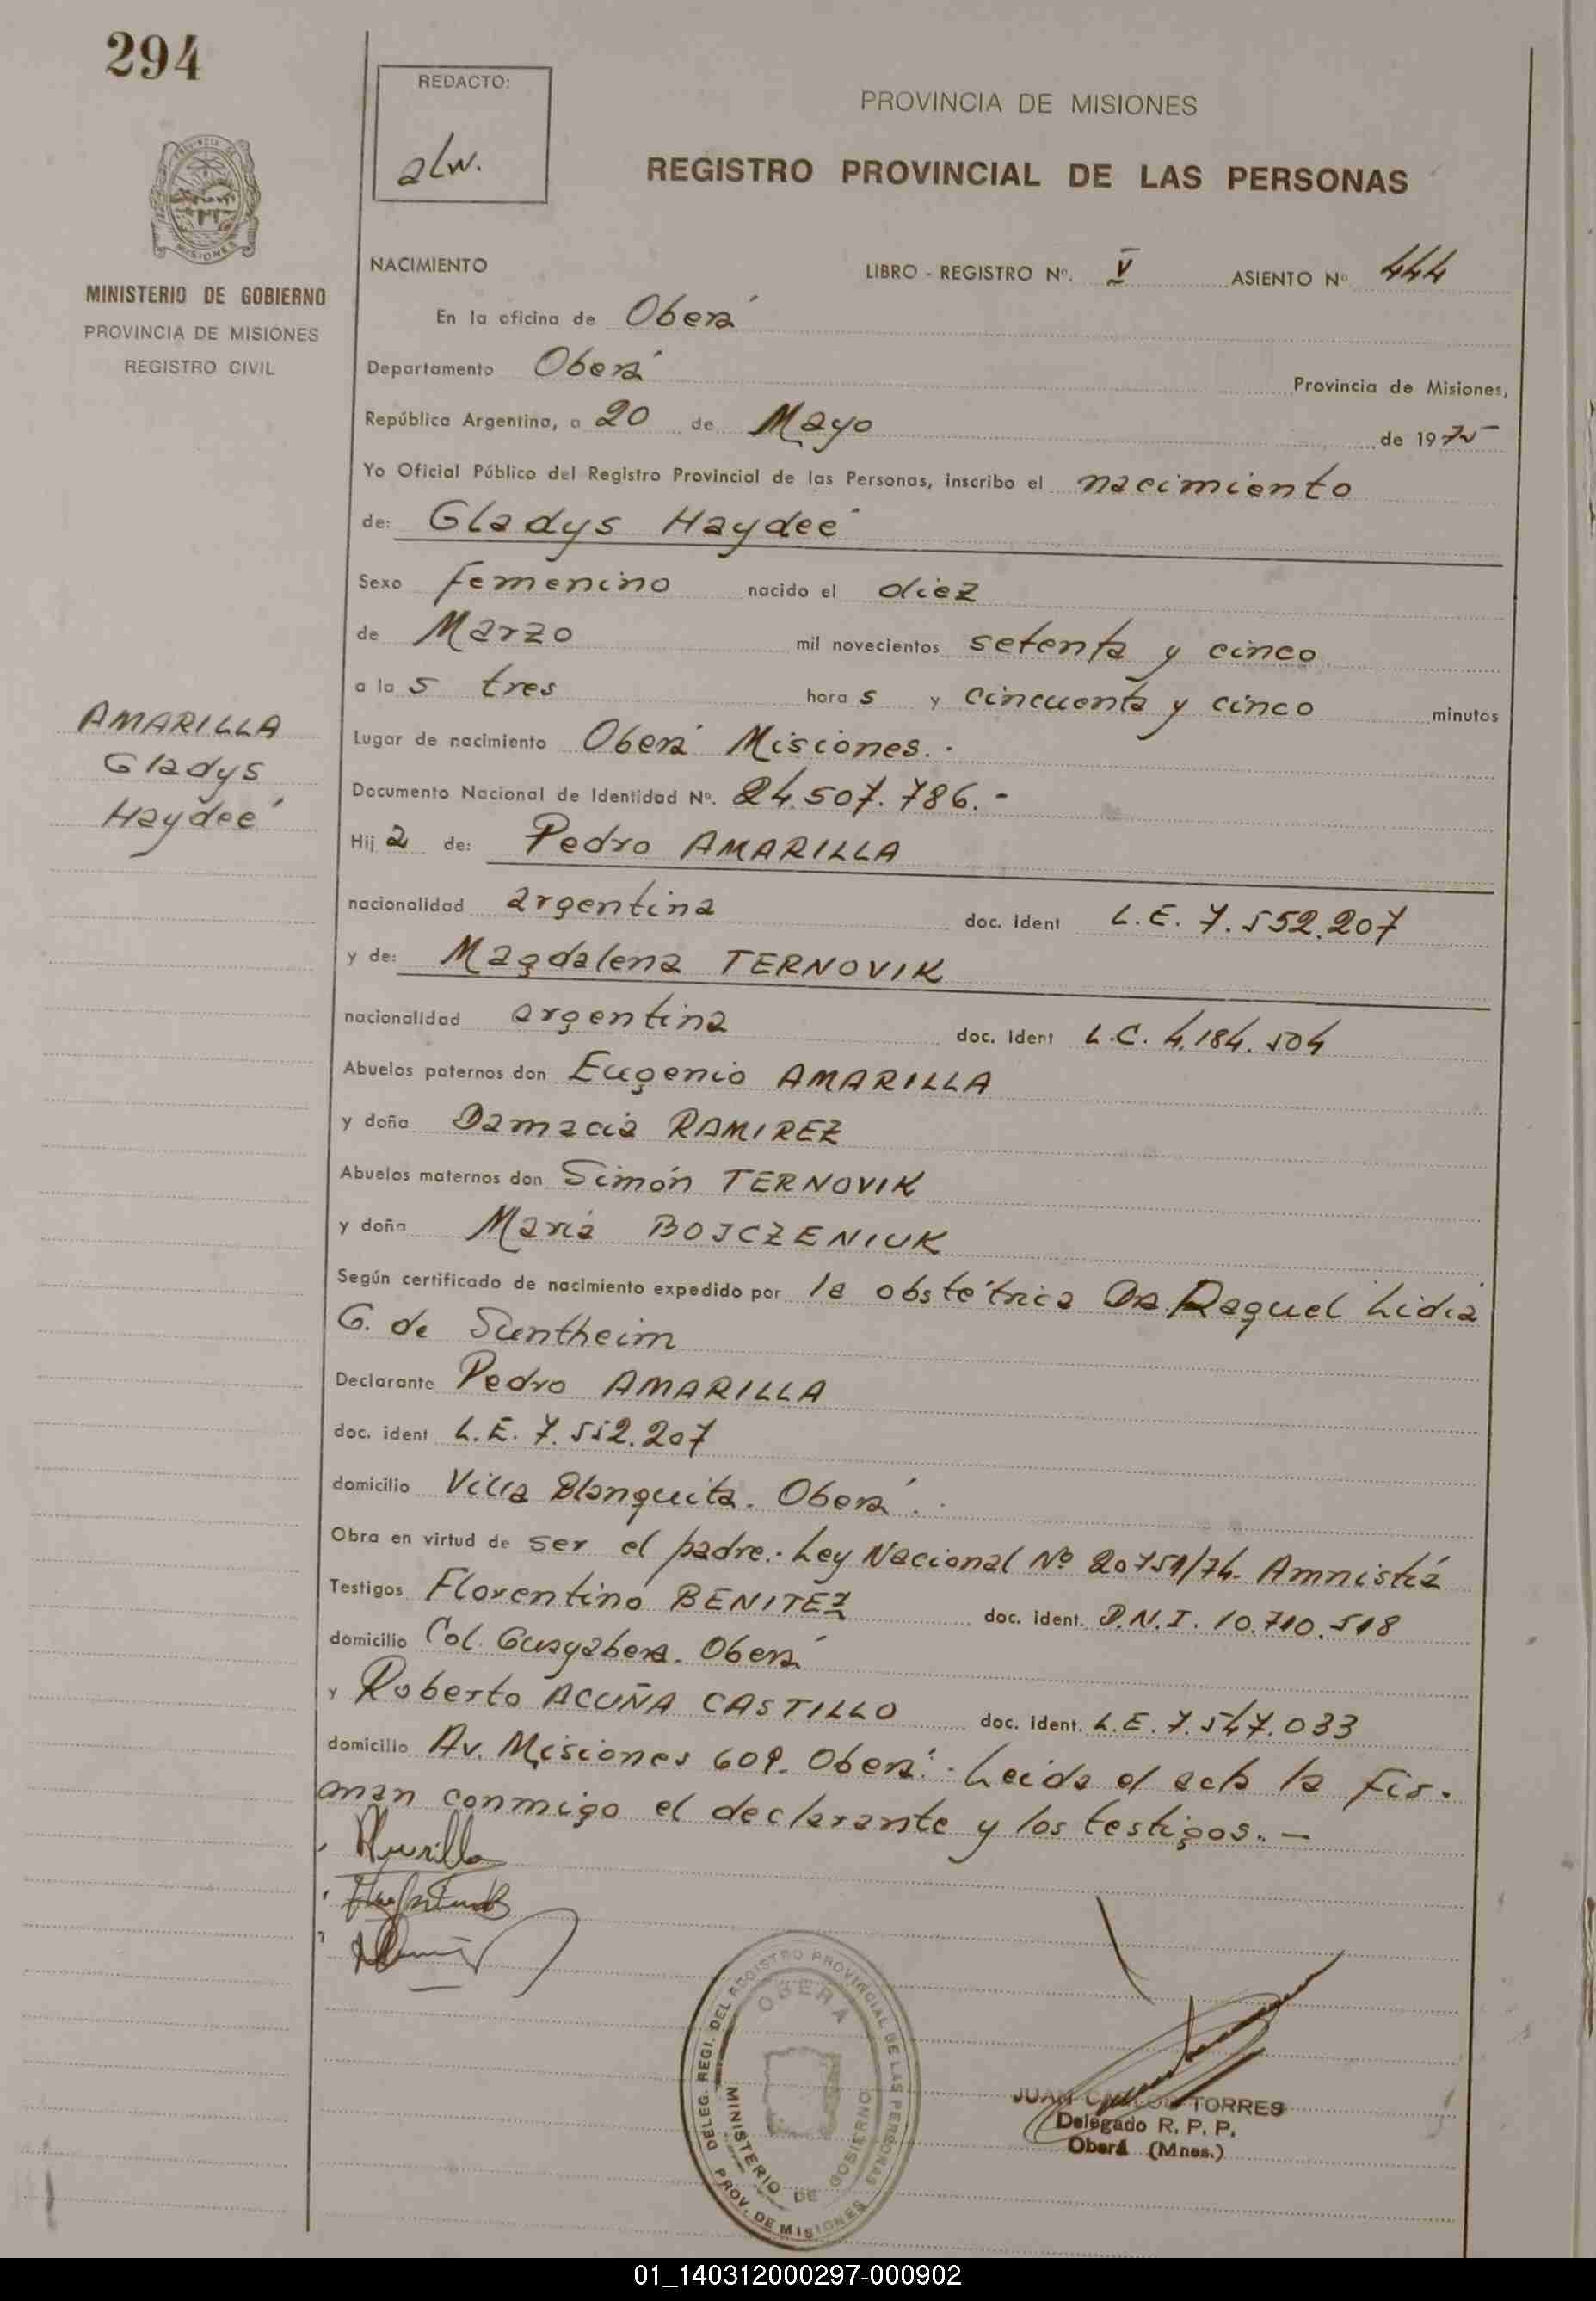 294
REDACTO:
alw.
PROVINCIA DE MISIONES
REGISTRO PROVINCIAL DE LAS PERSONAS
MISIONES
MINISTERIO DE GOBIERNO
PROVINCIA DE MISIONES
REGISTRO CIVIL
NACIMIENTO LIBRO - REGISTRO Nº. V ASIENTO Nº 444
En la oficina de Oberá
Departamento Oberá Provincia de Misiones,
República Argentina, a 20 de Mayo de 1975
Yo Oficial Público del Registro Provincial de las Personas, inscribo el nacimiento
de: Gladys Haydeé
Sexo femenino nacido el diez
de Marzo mil novecientos setenta y cinco
a las tres horas y cincuenta y cinco minutos
AMARILLA
Gladys
Haydeé
Lugar de nacimiento Oberá Misiones.-
Documento Nacional de Identidad Nº. 24.507.786.-
Hija de: Pedro AMARILLA
nacionalidad argentina doc. ident L.E. 7.552.207
y de: Magdalena TERNOVIK
nacionalidad argentina doc. ident L.C. 4.184.504
Abuelos paternos don Eugenio AMARILLA
y doña Damacia RAMIREZ
Abuelos maternos don Simón TERNOVIK
y doña María BOJCZENIUK
Según certificado de nacimiento expedido por la obstétrica Da. Raquel Lidia
G. de Suntheim
Declarante Pedro AMARILLA
doc. ident L.E. 7.552.207
domicilio Villa Blanquita. Oberá.-
Obra en virtud de ser el padre.- Ley Nacional Nº 20751/74- Amnistía
Testigos Florentino BENITEZ doc. ident. D.N.I. 10.710.518
domicilio Col. Guayabera. Oberá
y Roberto ACUÑA CASTILLO doc. ident. L.E. 7.547.033
domicilio Av. Misiones 609. Oberá.- Leida el acta la fir-
man conmigo el declarante y los testigos.-
DELEG. REGI. DEL REGISTRO PROVINCIAL DE LAS PERSONAS
OBERA
MINISTERIO DE GOBIERNO
PROV. DE MISIONES
JUAN CARLOS TORRES
Delegado R. P. P.
Oberá (Mnes.)
01_140312000297-000902